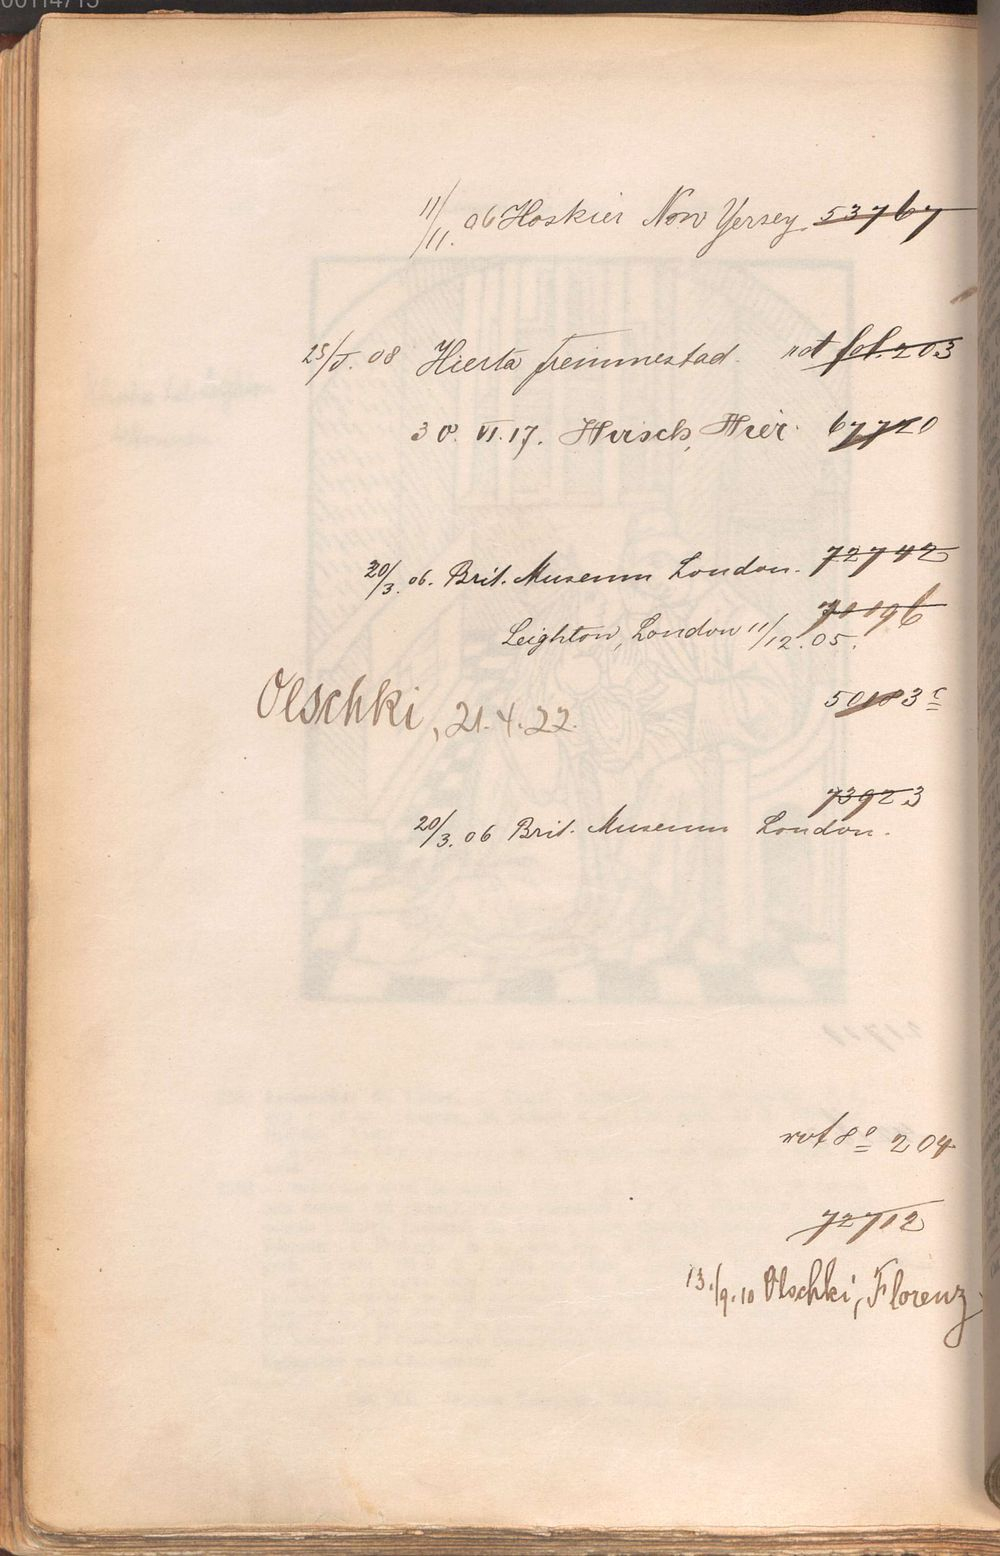 11/11. 06 Hoskier New Yersey. 53767
25/I. 08 Hierta Fremmestad. rot fol. 203
30. VI. 17. Hirsch, Hier. 67720
20/3. 06. Brit. Museum London. 72742
71196
Leighton, London 11/12. 05.
50183 c
Olschki, 21. 4. 22.
73923
20/3. 06 Brit. Museum London.
rot 8º 204
72712
13./9. 10 Olschki, Florenz